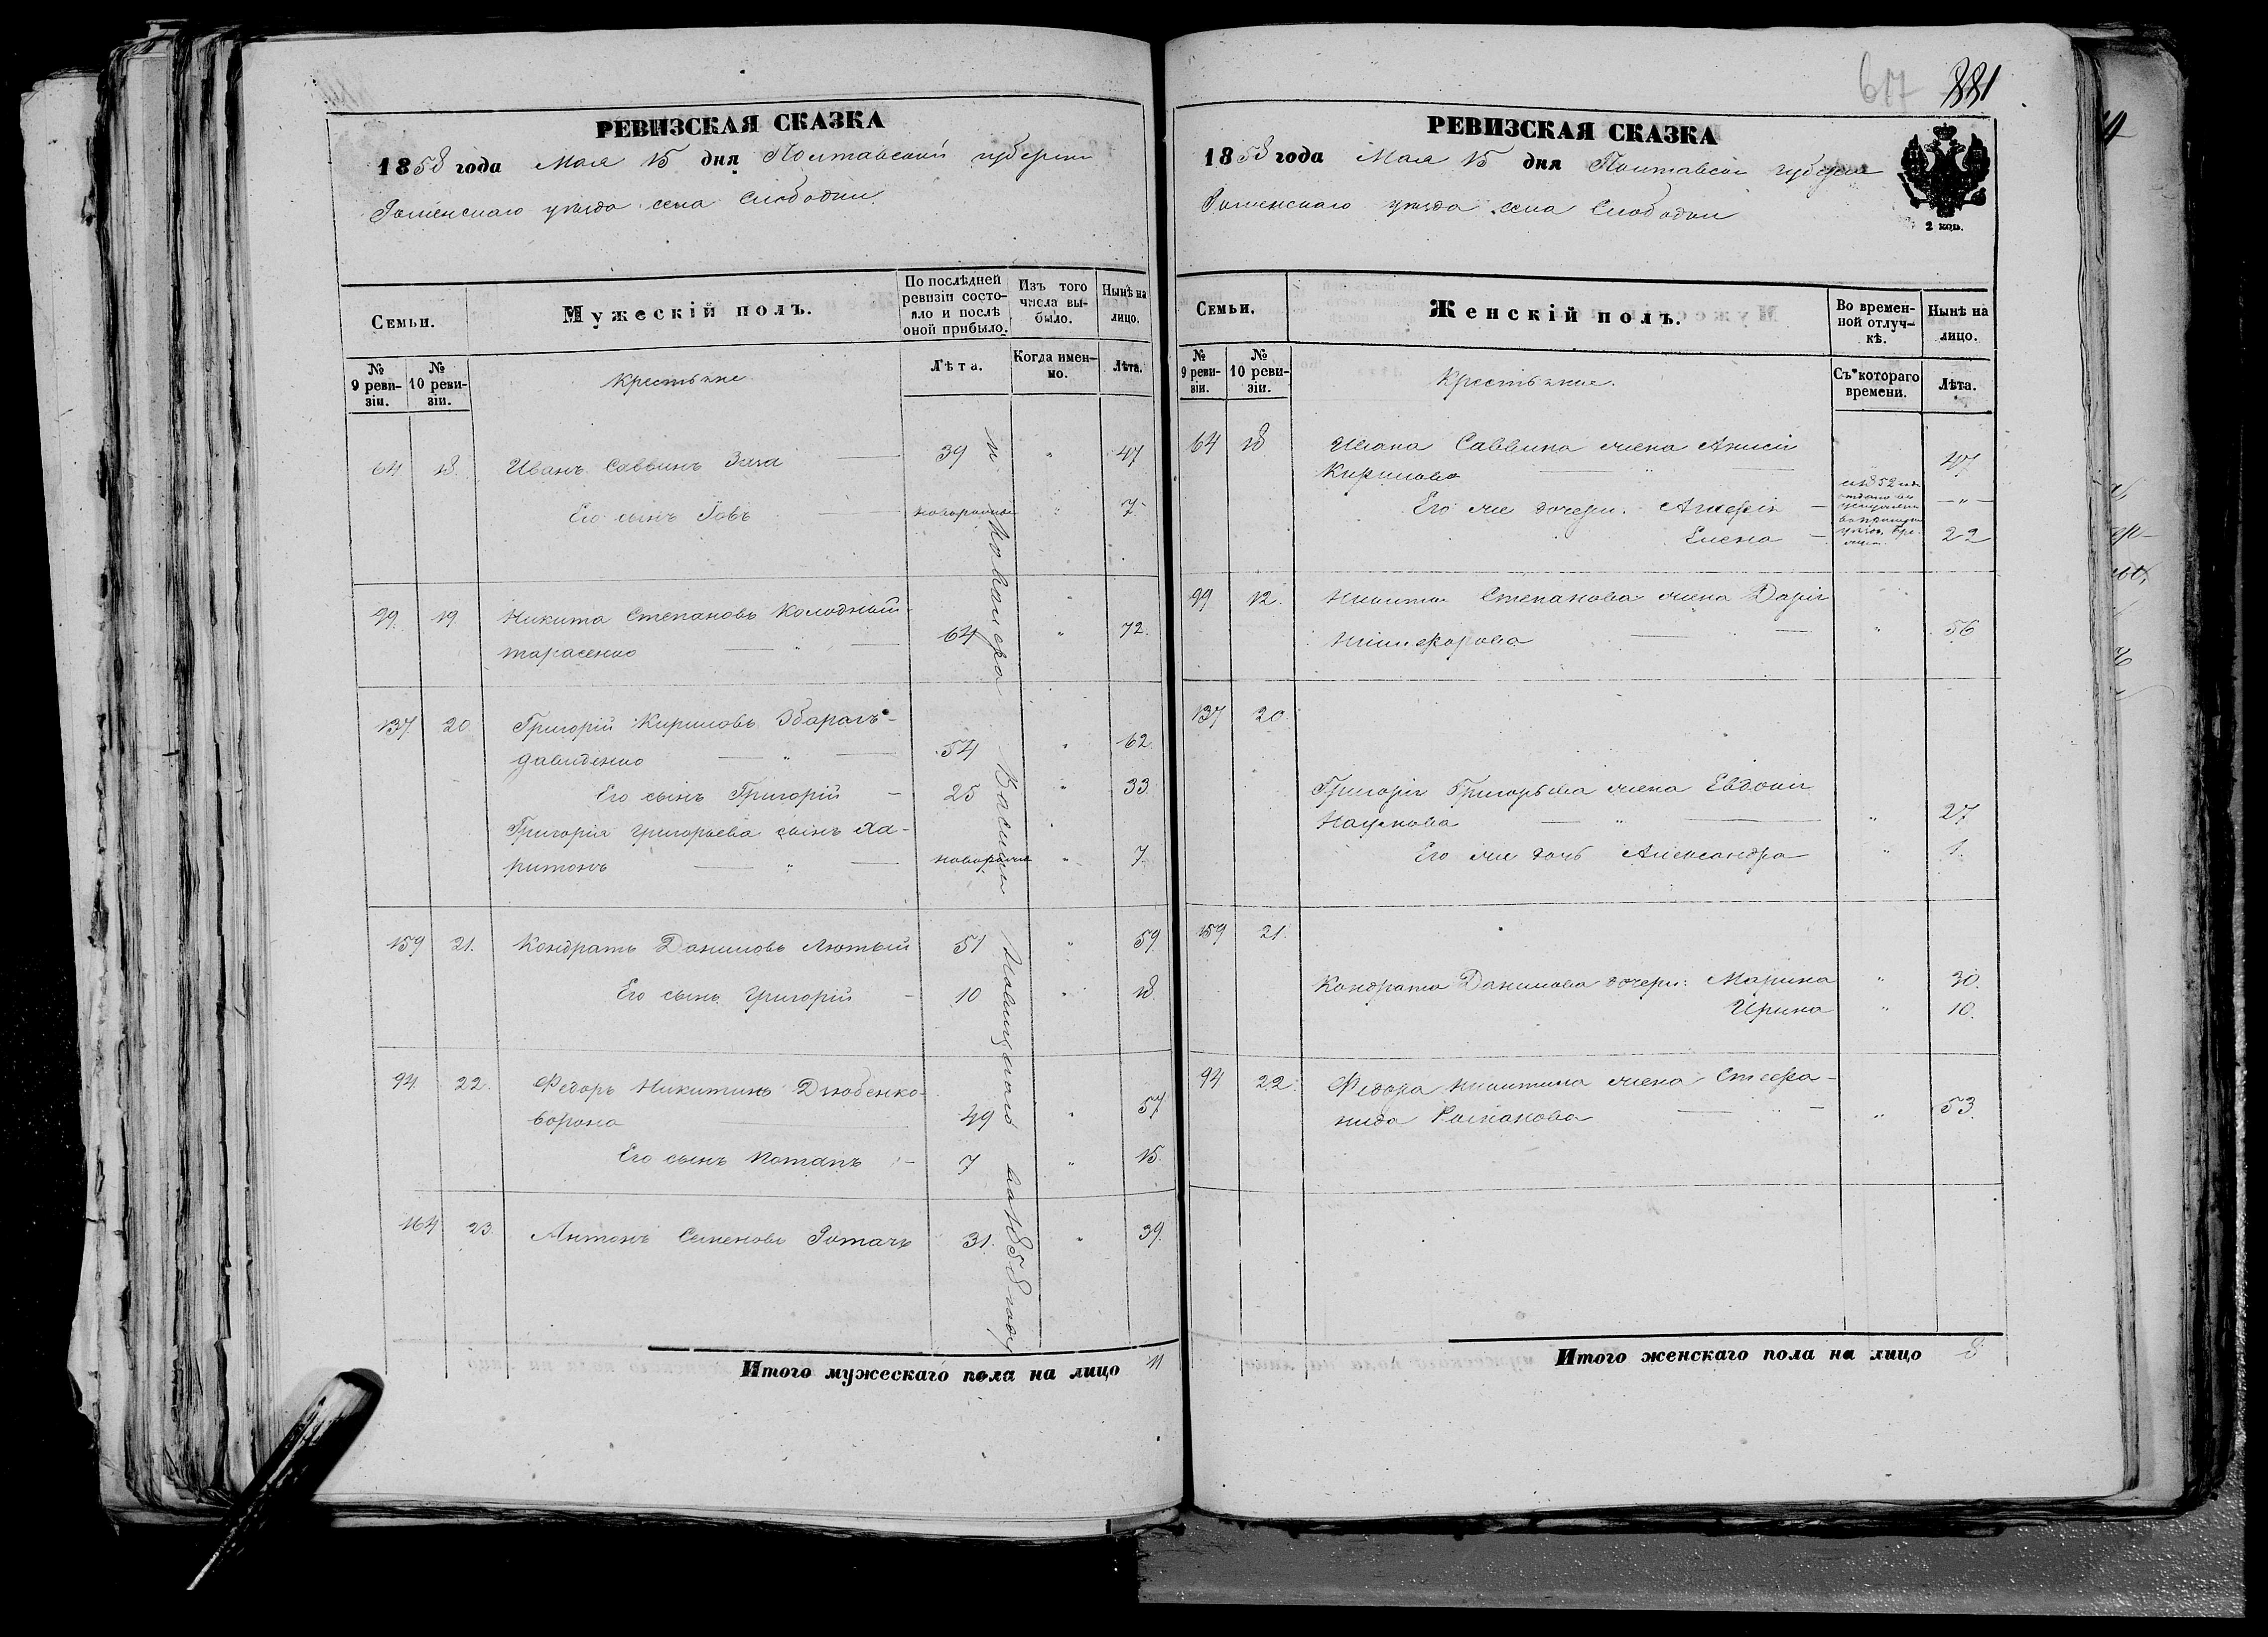 РЕВИЗСКАЯ СКАЗКА
1858 года Мая 15 дня Полтавской губернии
Роменскаго уезда села Слободки
Семьи.
Мужескій полъ.
По послѣдней ревизіи состояло и послѣ оной прибыло.
Изъ того числа выбыло.
Нынѣ на лицо.
№ 9 ревизіи.
№ 10 ревизіи.
Крестьяне
Лѣта.
Когда именно.
Лѣта.
64 18. Иванъ Саввинъ 39 " 47
Его сынъ Іовъ новорожден " 7
99. 19 Никита Степановъ Колодный
тарасенко " 64 " 72.
137. 20 Григорій Кириловъ Збарагъ-
давиденко " 54 " 62.
Его сынъ Григорій 25 " 33
Григорія Григорьева сынъ Ха-
ритонъ " новорожд " 7.
159 21. Кондратъ Даниловъ Лютый 51 " 59
Его сынъ Григорій 10 " 18.
94. 22. Федоръ Никитинъ Дзюбенко-
ворона 49 " 57
Его сынъ Потапъ 7 " 15.
164 23. Антонъ Семеновъ Ротачъ 31. " 39.
Василій Новицкого 1858 году
Итого мужескаго пола на лицо 11
617 881
РЕВИЗСКАЯ СКАЗКА
1858 года Мая 15 дня Полтавской губерніи
Роменскаго уезда села Слободки
2 коп.
Семьи.
Женскій полъ.
Во временной отлучкѣ.
Нынѣ на лицо.
№ 9 ревизіи.
№ 10 ревизіи.
Крестьяне.
Съ котораго времени.
Лѣта.
64 18 Ивана Саввина жена Анисія
Кирилова " 47
Его же дочери: "
Елена 22
99 12. Никиты Степанова жена Дарія
Никифорова " 56
137 20.
Григорія Григорьева жена Евдокія
Наумова " " 27
Его же дочь Александра " 1.
159 21.
Кондрата Данилова дочери: Марина " 30.
Ирина " 10.
94 22. Федора Никитина жена Стефа-
нида Романова " " 53.
Итого женскаго пола на лицо 8